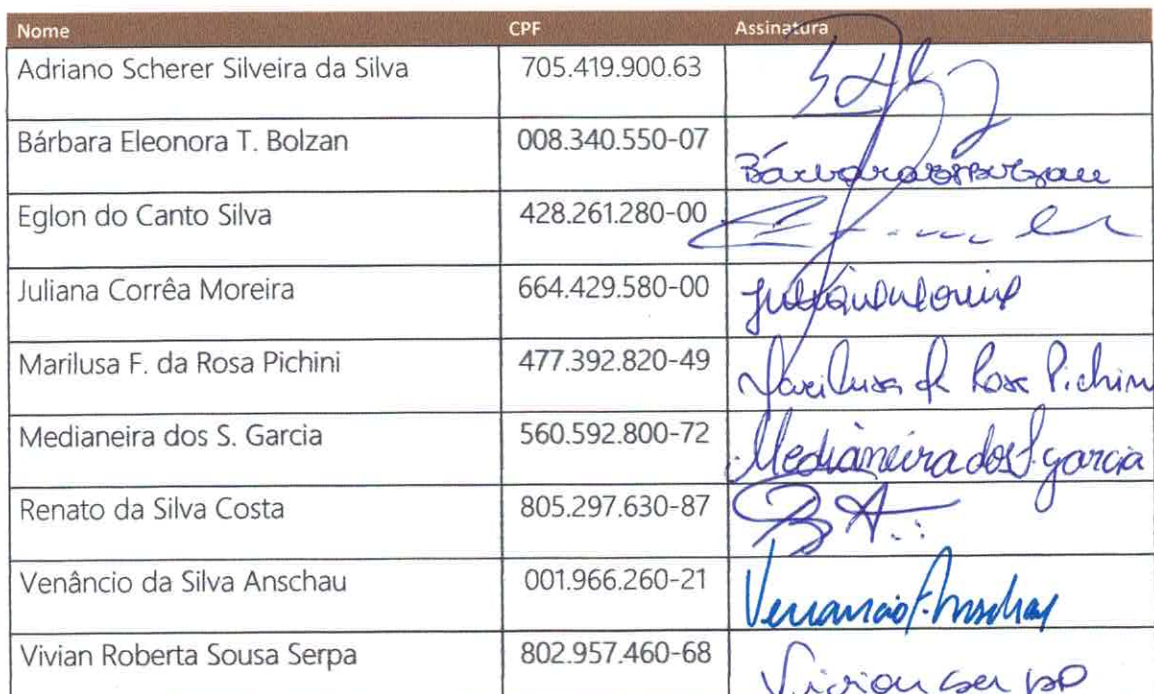 Nome CPF Assinatura
Adriano Scherer Silveira da Silva 705.419.900.63
Bárbara Eleonora T. Bolzan 008.340.550-07
Eglon do Canto Silva 428.261.280-00
Juliana Corrêa Moreira 664.429.580-00
Marilusa F. da Rosa Pichini 477.392.820-49 Marilusa da Rosa Pichini
Medianeira dos S. Garcia 560.592.800-72 Medianeira dos S. Garcia
Renato da Silva Costa 805.297.630-87
Venâncio da Silva Anschau 001.966.260-21 Venancio S. Anschau
Vivian Roberta Sousa Serpa 802.957.460-68 Vivian Serpa